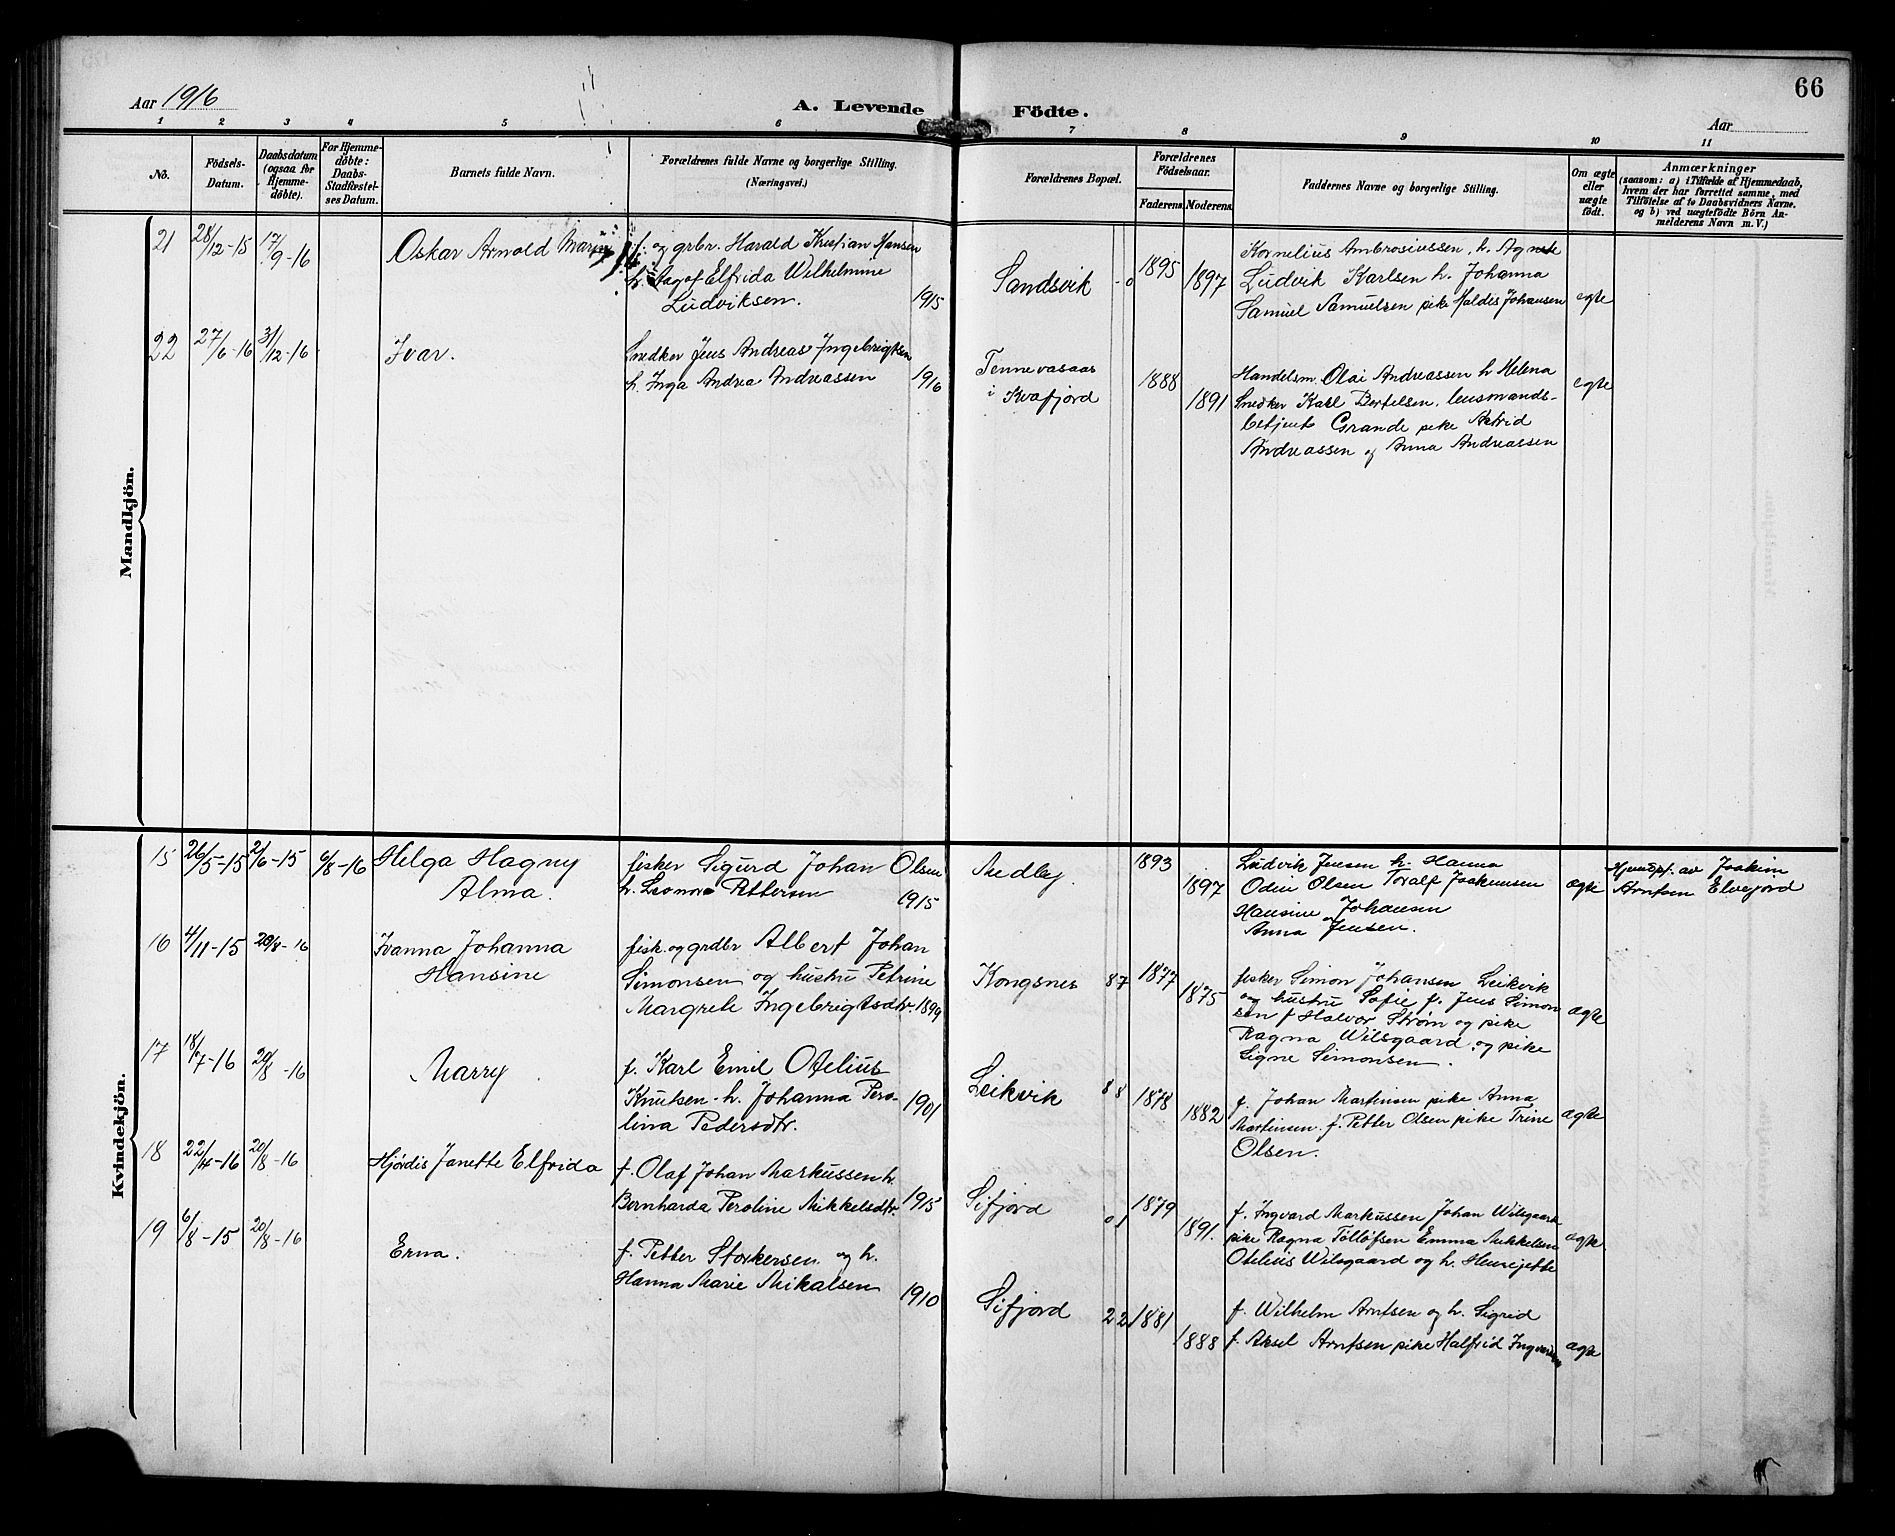 66
Aar 1916
A. Levende Födte.
Aar
1 2 3 4 5 6 7 8 9 10 11
No.
Födsels-
Datum.
Daabsdatum
(ogsaa for
Hjemme-
döbte).
For Hjemme-
döbte:
Daabs-
Stadfæstel-
ses Datum.
Barnets fulde Navn.
Forældrenes fulde Navne og borgerlige Stilling.
(Næringsvei.)
Forældrenes Bopæl.
Forældrenes
Födselsaar.
Faderens. Moderens.
Faddernes Navne og borgerlige Stilling.
Om ægte
eller
uægte
födt.
Anmærkninger
(saasom: a) i Tilfælde af Hjemmedaab,
hvem der har forrettet samme, med
Tilföielse af to Daabsvidners Navne.
og b) ved uægtefödte Börn An-
melderens Navn m. V.)
Mandkjön.
21 28/12-15 17/9-16
Oskar Arnold
f. og grbr. Harald Kristian Hansen
h. Elfrida Wilhelmine
Ludviksen. 1915
Sandsvik
1895 1897
Kornelius Ambrosiussen, h. Agnete
Ludvik Karlsen h. Johanna
Samuel Samuelsen pike Haldis Johansen
egte
22 27/6-16 31/12-16
Ivar.
Snedker Jens Andreas Ingebrigtsen
h. Inga Andrea Andreassen 1916
Tennevasaas
i Kvafjord
1888 1891
Handelsm. Olai Andreassen h Helena
Snedker Karl Bertelsen, lensmands-
betjent Grande pike Astrid
Andreassen og Anna Andreassen
egte
Kvindekjön.
15 26/5-15 2/6-15 6/8-16
Helga Hagny
Alma.
fisker Sigurd Johan Olsen
h. Leonora Pettersen 1915
Medby
1893 1897
Ludvik Jensen h. Hanna
Odin Olsen Toralf Joakimsen
Hansine Johansen
Anna Jensen.
ægte
Hjemdpt. av Joakim
Arntsen Elvejord
16 4/11-15 20/8-16
Ivanna Johanna
Hansine
fisk. og grdbr Albert Johan
Simonsen og hustru Petrine
Margrete Ingebrigtsdtr. 1899
Kongsnes 87
1877 1875
fisker Simon Johansen Leikvik
og hustru Sofie f. Jens Simon
sen f Halvor Strøm og pike
Ragna Wilsgaard og pike
Signe Simonsen.
ægte
17 18/7-16 20/8-16
Marry
f. Karl Emil Otelius
Knutsen - h. Johanna Pero-
lina Pedersdtr. 1901
Leikvik 88
1878 1882
f. Johan Martinsen pike Anna
Martinsen. f. Petter Olsen pike Trine
Olsen.
ægte
18 22/4-16 20/8-16
Hjørdis Janette Elfrida
f. Olaf Johan Markussen h.
Bernharda Peroline Mikkelsdtr. 1915
Sifjord 01
1879 1891.
f. Ingvard Markussen Johan Wilsgaard
pike Ragna Tollofsen Emma Mikkelsen
Otelius Wilsgaard og h. Henrijette
ægte.
19 6/8-15 20/8-16
Erna.
f. Petter Storkersen og h.
Hanna Marie Mikalsen 1910
Sifjord 22
1881 1888
f. Wilhelm Arntsen og h. Sigrid
f. Aksel Arntsen pike Halfrid Ingvardsen
ægte